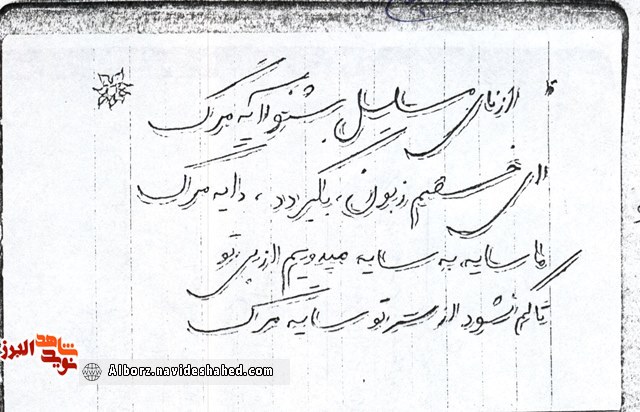 از نای مسلسل بشنو آیه مرگ
ای خصم زبون، بگیر دد، دایه مرگ
ما سایه به سایه میدویم از پی تو
تا کم نشود از سر تو سایه مرگ
نوید شاهد البرز
Alborz.navideshahed.com